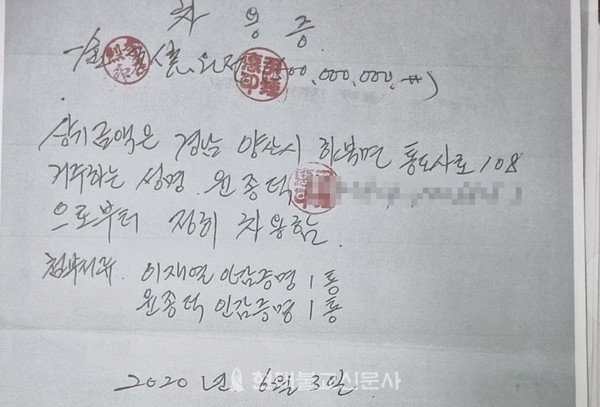 차용증
상기금액은 경남 양산시 하북면 통도사로 108
거주하는 성명 윤종덕
으로부터 정히 차용함.
첨부서류. 이재열 인감증명 1통
윤종덕 인감증명 1통
2020년 6월 3일
현대불교신문사